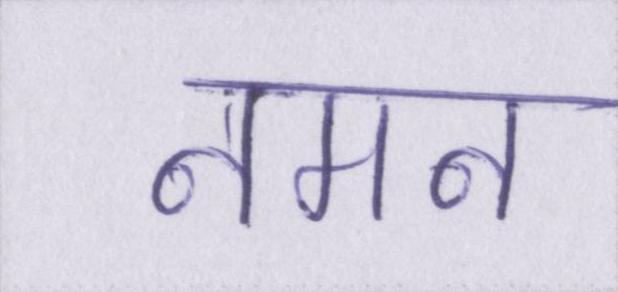 नमन